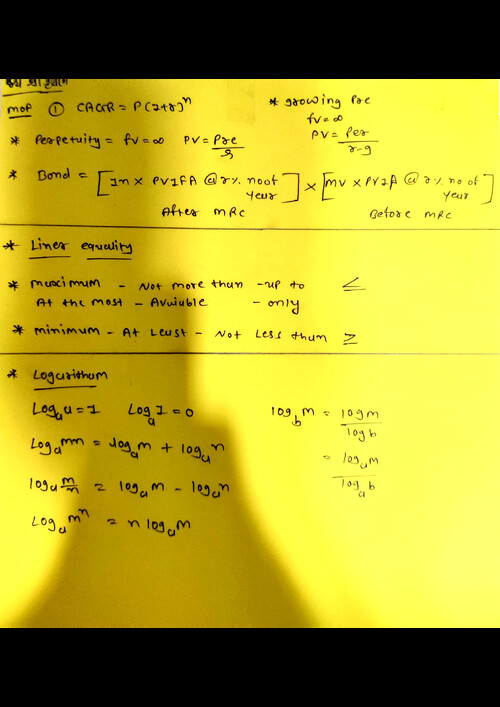 mop ① CAGR = P(1+r)^n
* growing Pre
fv = ∞
PV = Per / r-g
* Perpetuity = fv = ∞ PV = Pre / r
* Bond = [In × PVIFA @ r% no of year] × [MV × PVIA @ r% no of year]
After MRC Before MRC
* Liner equality
* maximum - Not more than - up to ≤
At the most - Avuiable - only
* minimum - At Least - Not Less than ≥
* Logarithum
Log_a a = 1 Log_a 1 = 0
Log_a mn = log_a m + log_a n
log_a m/n = log_a m - log_a n
Log_a m^n = n log_a m
log_b m = log m / log b
= log_a m / log_a b